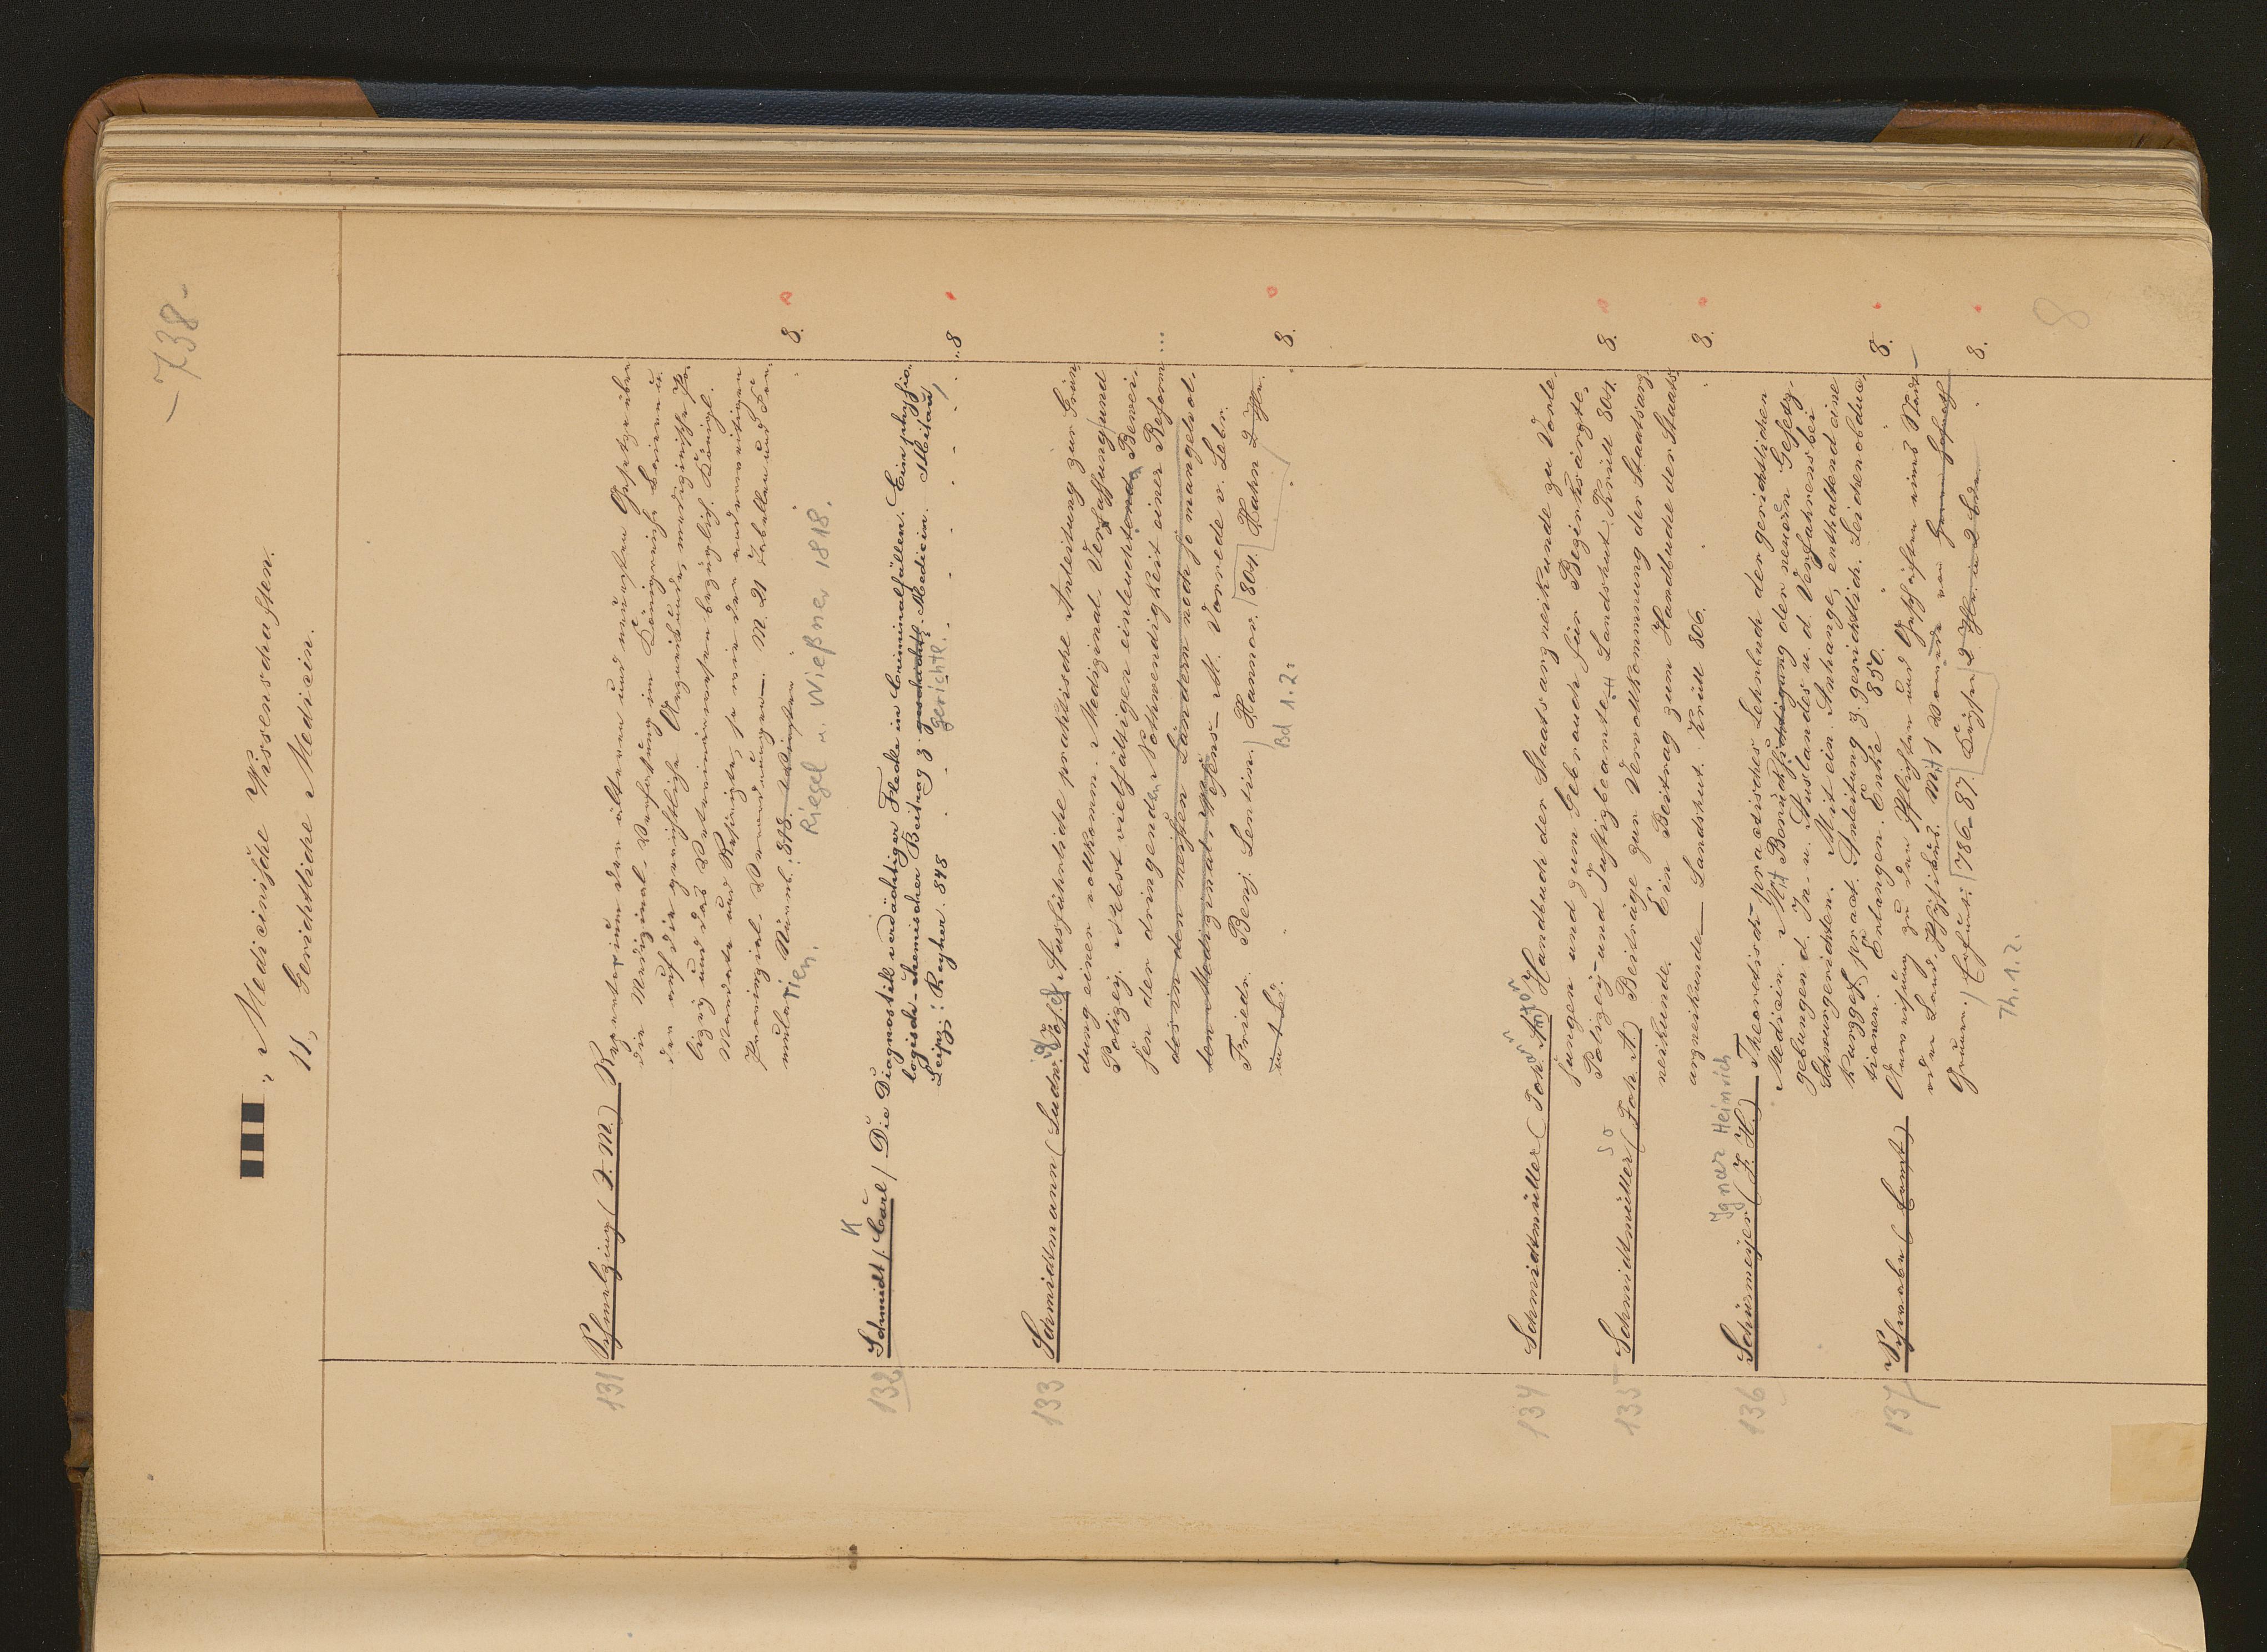 – 738 –
Medicinische Wissenschaften.
11, Gerichtliche Medicin.
131 Schmelzing (J. M.) Repertorium der ältern und neuesten Gesetze über
die Medizinal-Verfassung im Königreiche Baiern u.
der auf die gerichtliche Arzneikunde, medizinische Po-
lizey und das Veterinärwesen bezüglich. Königl.
Mandate und Rescripte, so wie der anderweitigen
Provinzial-Verordnungen. M. 21 Tabellen und For-
mularien. Nürnb. 818. 8.
Riegel u. Wießner 1818.
132 Schmidt, Carl / Die Diagnostik verdächtiger Flecke in Criminalfällen. Ein physio-
K
logisch-chemischer Beitrag z. gerichtl. Medicin. Mitau,
gerichtl.
Leipz.: Reyher. 848 8
133 Schmidtmann (Ludw. Josef) Ausführliche praktische Anleitung zur Grün-
dung einer vollkomm. Medizinal-Verfassung und
Polizey. Nebst vielfältigen einleuchtenden Bewei-
sen der dringenden Nothwendigkeit einer Reform ...
des in den meisten Ländern noch so mangelhaf-
ten Medizinal-Wesens – M. Vorrede v. Lebr.
Friedr. Benj. Lentin. / Hannov. 804. Hahn 2 Thle. 8.
in 1 Bd.
Bd 1.2.
134 Schmidtmüller (Joh. Anton) Handbuch der Staatsarzneikunde zu Vorle-
sungen und zum Gebrauch für Bezirksärzte,
Polizey- und Justizbeamte. Landshut. Krüll 804. 8.
135 Schmidtmüller (Joh. A.) Beiträge zur Vervollkommnung der Staatsarz-
neikunde. Ein Beitrag zum Handbuche der Staats-
arzneikunde – Landshut. Krüll 806. 8.
Ignaz Heinrich
136 Schürmeyer (J. H.) Theoretisch-practisches Lehrbuch der gerichtlichen
Medicin. Mit Berücksichtigung der neuern Gesetz-
gebungen d. In- u. Auslandes u. d. Verfahrens bei
Schwurgerichten. Mit ein. Anhange, enthaltend eine
kurzgef. pract. Anleitung z. gerichtlich. Leichenobduc-
tionen. Erlangen. Enke 850. 8.
137 Schwabe (Ernst) Anweisung zu den Pflichten und Geschäften eines Stadt-
oder Land-Physikus. Mit Vorrede von
Gruner. / Erfurt: 786–87. Keyser 2 Thle. in 2 Bden 8.
Th. 1.2.
8